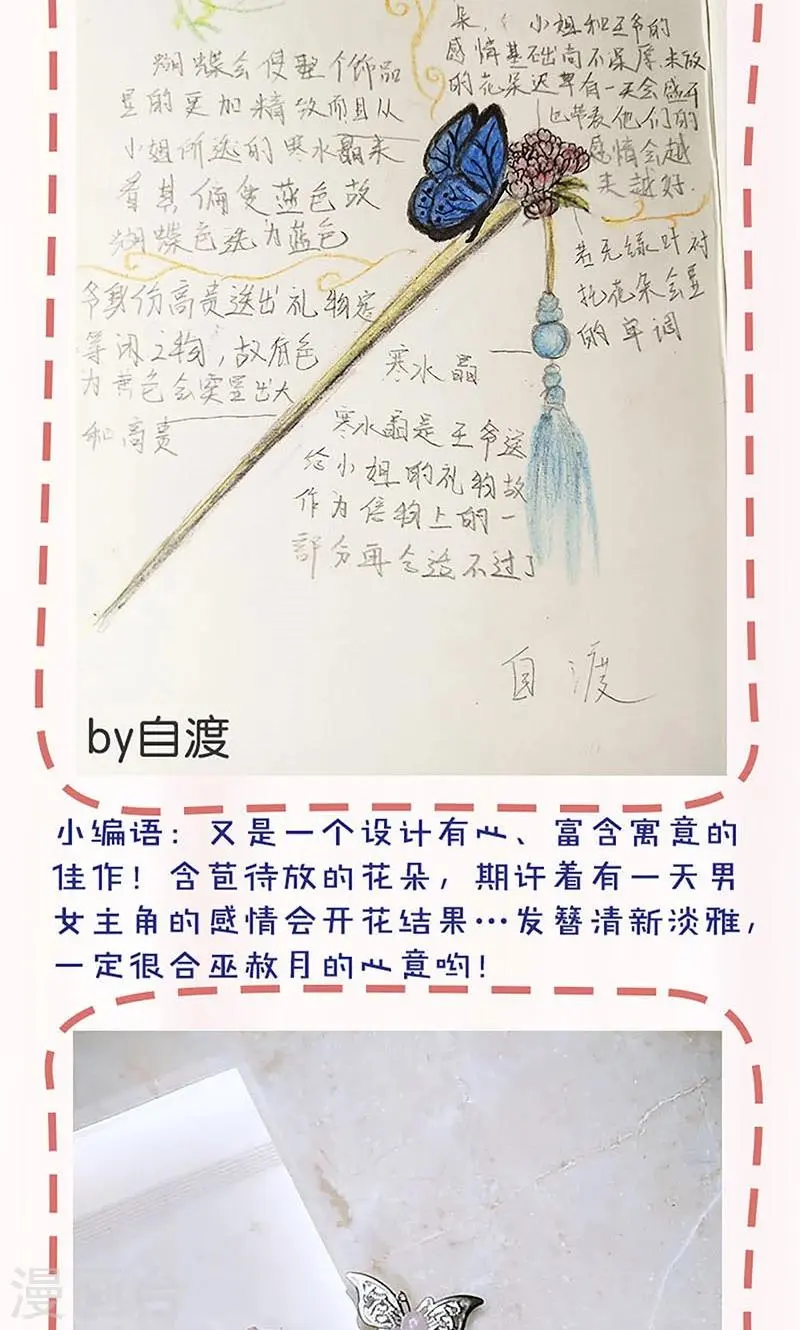 朵,小姐和王爷的
感情基础尚不深厚.未放
的花朵迟早有一天会盛开
也带表他们的
感情会越
来越好.
蝴蝶会使整个饰品
显的更加精致而且从
小姐所选的寒水晶来
看其偏隻蓝色故
蝴蝶色选为蓝色
若无绿叶衬
托花朵会显
的单调
爷身份高贵送出礼物定
等闲之物,故底色
为黄色会突显出大
和高贵
寒水晶
寒水晶是王爷送
给小姐的礼物故
作为信物上的一
部分再合适不过了
自渡
by自渡
小编语：又是一个设计有心、富含寓意的
佳作！含苞待放的花朵，期许着有一天男
女主角的感情会开花结果…发簪清新淡雅，
一定很合巫赦月的心意哟！
漫画台